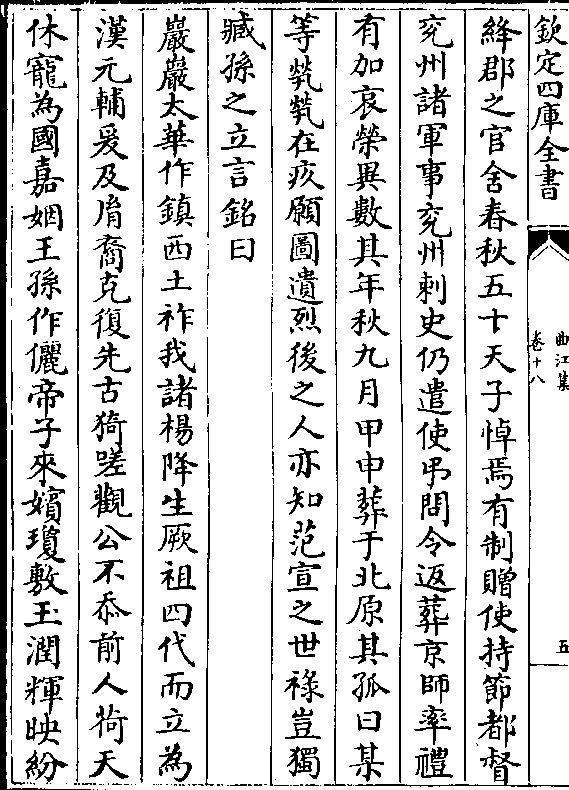 欽定四庫全書
曲江集
卷十八
五
絳郡之官舍春秋五十天子悼焉有制贈使持節都督
兖州諸軍事兖州刺史仍遣使弔問令返葬京師率禮
有加哀榮異數其年秋九月甲申葬于北原其孤曰某
等煢煢在疚願圖遺烈後之人亦知范宣之世祿豈獨
臧孫之立言銘曰
巖巖太華作鎮西土祚我諸楊降生厥祖四代而立為
漢元輔爰及胤裔克復先古猗嗟觀公不忝前人荷天
休寵為國嘉姻王孫作儷帝子來嬪瓊敷玉潤輝映紛